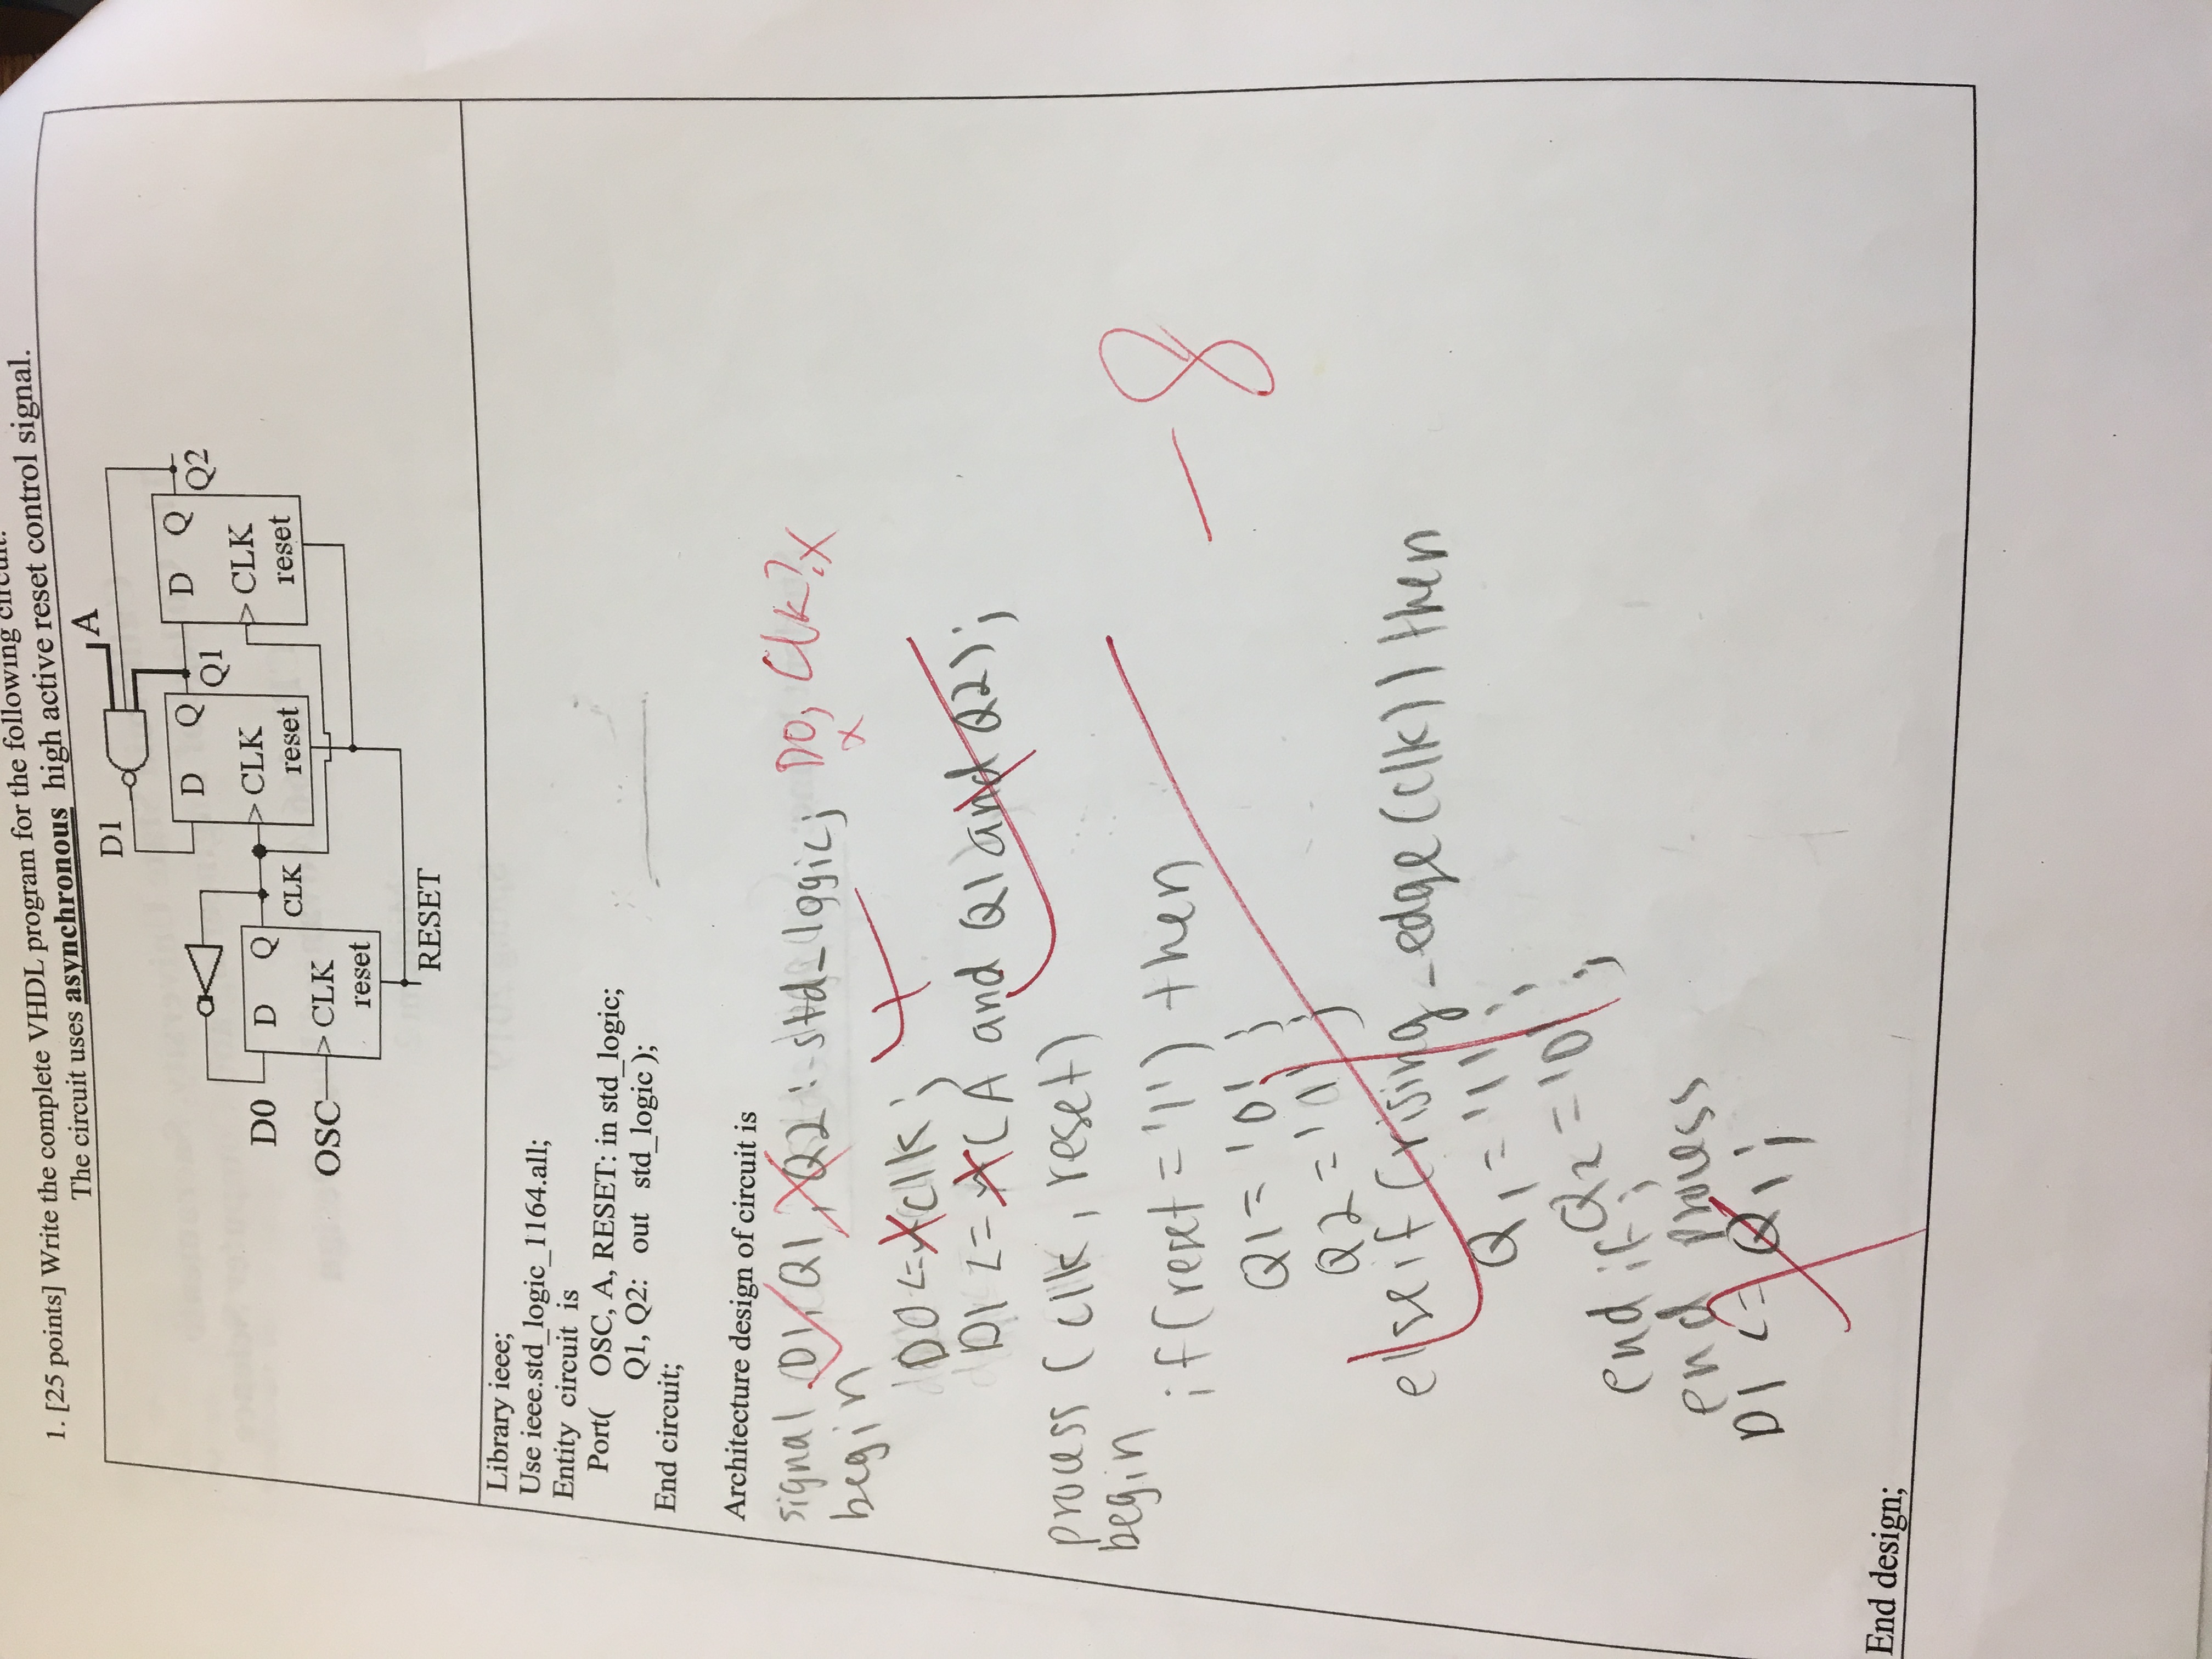 1. [25 points] Write the complete VHDL program for the following circuit.
The circuit uses asynchronous high active reset control signal.
A
D1
D Q
Q1
D Q
Q2
CLK
reset
CLK
reset
D0
D Q
CLK
OSC
CLK
reset
RESET
Library ieee;
Use ieee.std_logic_1164.all;
Entity circuit is
Port( OSC, A, RESET: in std_logic;
Q1, Q2: out std_logic );
End circuit;
Architecture design of circuit is
signal D1, Q1, Q2 : std_logic; D0, Clk? x
x
begin
D0 <= clk;
D1 <= (A and Q1 and Q2);
process (clk, reset)
begin
if(reset = '1') then
Q1 = '0';
Q2 = ;
-8
elseif (rising_edge(clk)) then
Q1 = '1';
Q2 = '0';
end if;
end process
D1 <= Q1;
End design;